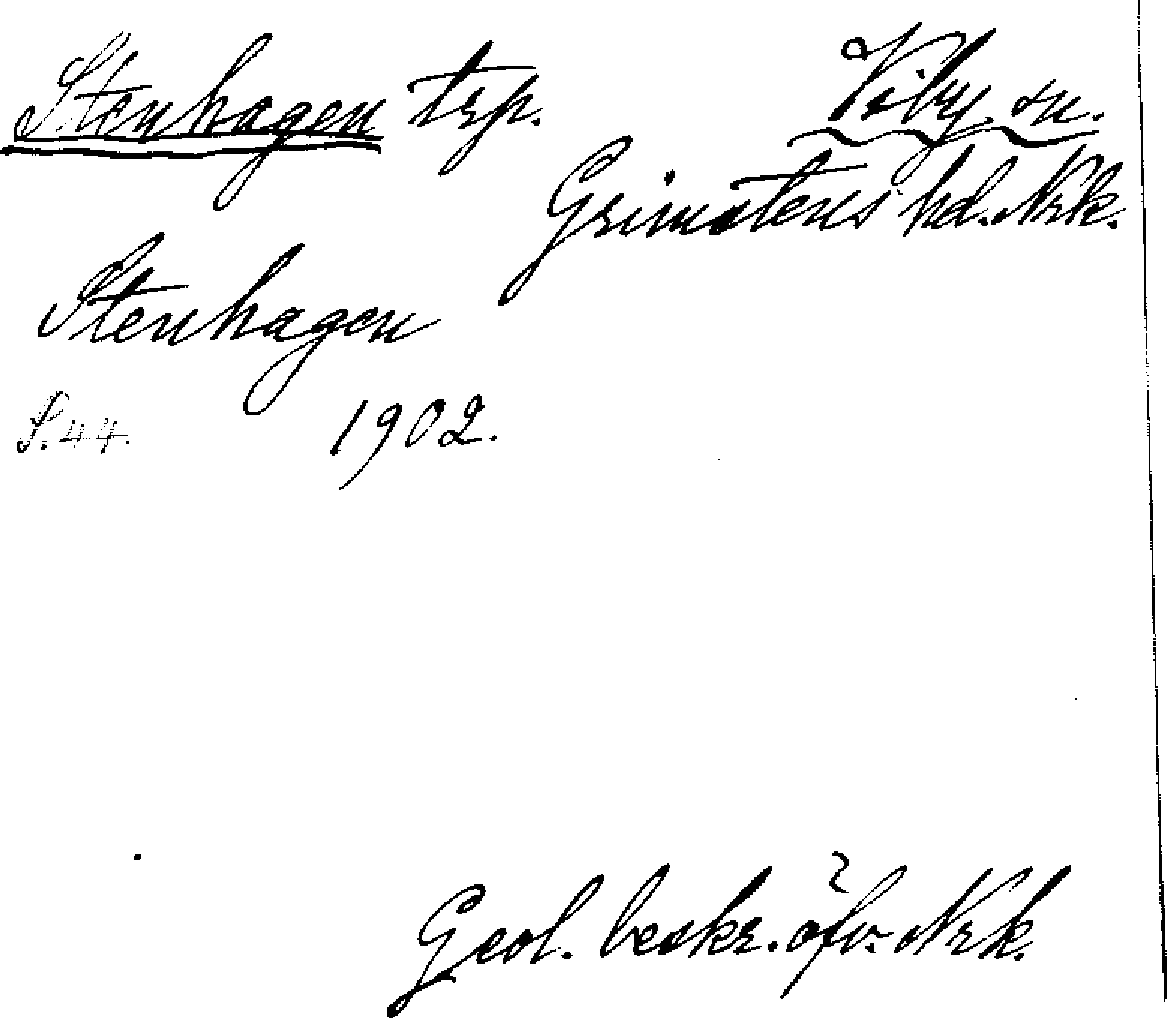 Stenhagen trp.
Viby sn.
Grimstens hd. Nrk.
Stenhagen
S. 44. 1902.
Geol. beskr. öfv. Nrk.